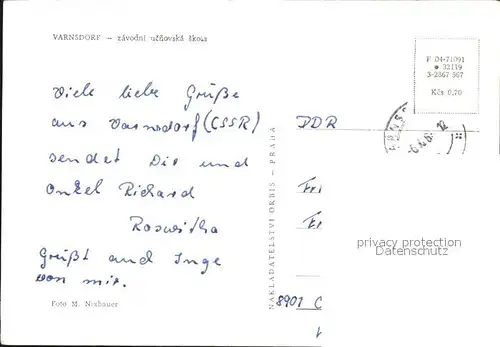 VARNSDORF – závodní učňovská škola
Viele liebe Grüße
aus Varnsdorf (CSSR)
sendet Dir und
Onkel Richard
Roswitha
Grüßt auch Inge
von mir.
Foto M. Nixbauer
NAKLADATELSTVÍ ORBIS – PRAHA
F 04-71091
● 32119
3-2867 567
Kčs 0,70
DDR
privacy protection
Datenschutz
8901